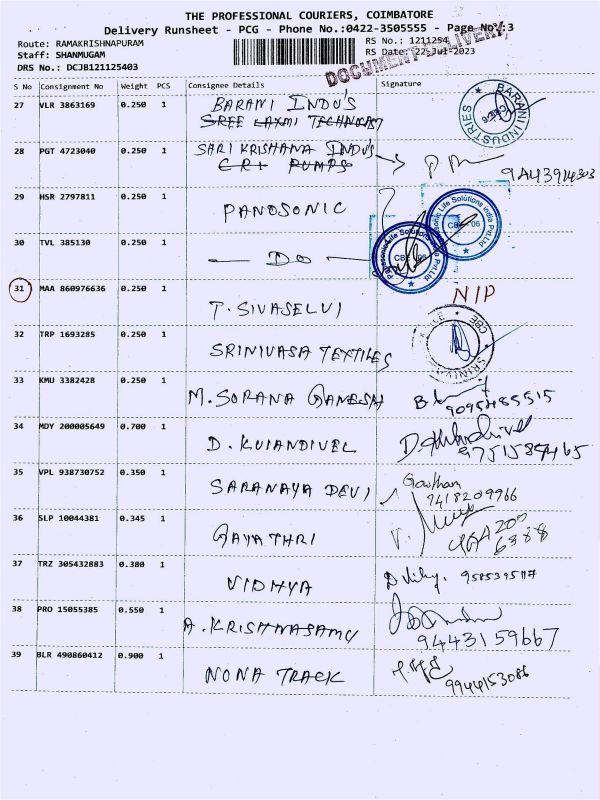 THE PROFESSIONAL COURIERS, COIMBATORE
Delivery Runsheet - PCG - Phone No.:0422-3505555 - Page No.:3
Route: RAMAKRISHNAPURAM
Staff: SHANMUGAM
DRS No.: DCJB121125403
RS No.: 1211254
RS Date: 22-Jul-2023
DOCUMENT DELIVERY
S No Consignment No Weight PCS Consignee Details Signature
27 VLR 3863169 0.250 1 BARANI INDU'S
SREE LAXMI
BARANI INDUSTRIES
CBE-6
28 PGT 4723040 0.250 1 SARI KRISHANA INDU'S
C.R.I PUMPS
29 HSR 2797811 0.250 1 PANOSONIC
Panasonic Life Solutions India Pvt Ltd
CBE - 06
30 TVL 385130 0.250 1 — DO —
Panasonic Life Solutions India Pvt Ltd
CBE - 06
31 MAA 860976636 0.250 1 T. SIVASELVI NIP
32 TRP 1693285 0.250 1 SRINIVASA TEXTILES
CBE
33 KMU 3382428 0.250 1 M. SORANA GANESH
9095485515
34 MDY 200005649 0.700 1 D. KUIANDIVEL
35 VPL 938730752 0.350 1 SARANAYA DEVI Gowtham
9418209966
36 SLP 10044381 0.345 1 GAYATHRI
6388
37 TRZ 305432883 0.380 1 VIDHYA
38 PRO 15055385 0.550 1 A. KRISHNASAMY
9443159667
39 BLR 490860412 0.900 1 NONA TRACK
9944153086